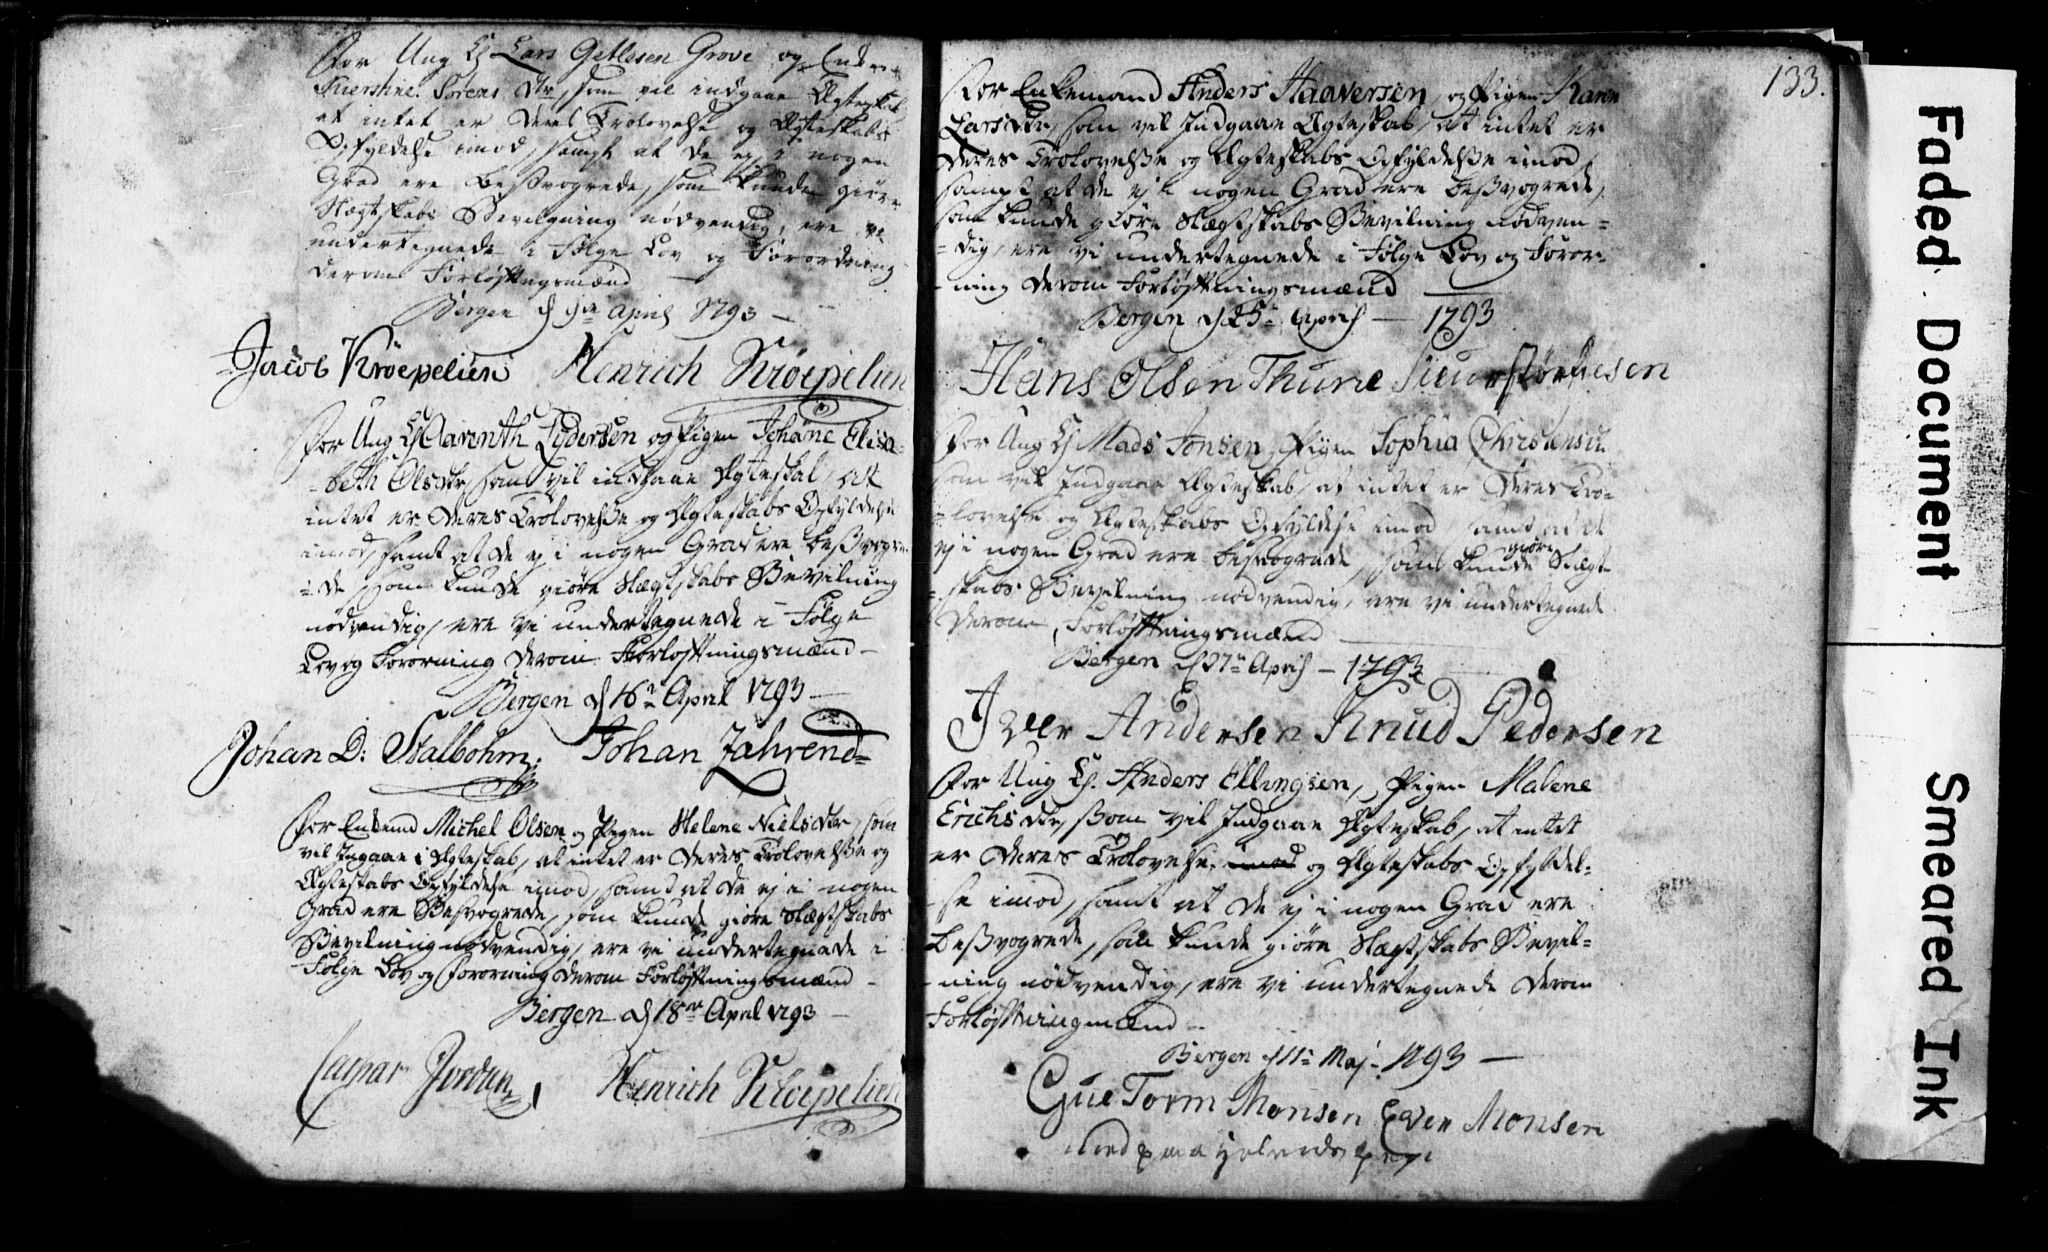 For Ung K. Lars Getlesen Grove og Enken
Kierstine Sørens Dtr, som vil indgaae Ægteskab
at intet er deres Trolovelse og Ægteskabs
Opfyldelse imod, samt at de ej i nogen
Grad ere besvogrede, som kunde giøre
Slægtskabs Bevilgning nødvendig, ere vi
undertegnede i Følge Lov og Forordning
derom Forløftningsmænd
Bergen d 9de April 1793
Jacob Krøepelien Henrich Krøepelien
For Ung K Aarenth Lydersen og Pigen Johane Elisa-
-beth Olsdtr, som vil indgaae Ægteskab, at
intet er deres Trolovelse og Ægteskabs Opfyldelse
imod, samt at de ej i nogen Grad ere besvogre-
-de som kunde giøre Slægtskabs Bevilning
nødvendig, ere vi undertegnede i Følge
Lov og Fororning derom Forløftningsmænd
Bergen d 16de April 1793
Johan D: Stalbohm. Johan Jahrend
For Enkemd Michel Olsen og Pigen Helene Nielsdtr, som
vil Ingaae i Ægteskab, at intet er deres Trolovelse og
Ægteskabs Opfyldelse imod, samt at de ej i nogen
Grad ere Besvogrede, som kunde giøre Slægtskabs
Bevilning nødvendig, ere vi undertegnede i
Følge Lov og Fororning derom Forløftningsmænd
Bergen d 18de April 1793
Caspar Jordan Henrich Krøepelien
133.
For Enkemand Anders Haaversen, og Pigen Karen
Larsdtr, som vil Indgaae Ægteskab, at intet er
deres Trolovelse og Ægteskabs Opfyldelse imod,
samt at de ej i nogen Grad ere besvogrede,
som kunde giøre Slægtskabs Bevilning nødven-
-dig, ere vi undertegnede i Følge Lov og Foror-
-ning derom Forløftningsmænd
Bergen d 25de April 1793
Hans Olsen Thune
For Ung K Mads Jonsen, Pigen Sophia
som vil Indgaae Ægteskab, at intet er deres Tro-
-lovelse og Ægteskabs Opfyldelse imod, samt at de
ej i nogen Grad ere besvogrede, som kunde giøre Slægt-
-skabs Bevilning nødvendig, ere vi undertegnede
derom Forløftningsmænd
Bergen d 27de April 1793
Iver Andersen Knud Pedersen
For Ung K. Anders Ellingsen, Pigen Malene
Erichsdtr, som vil Indgaae Ægteskab, at intet
er deres Trolovelse imod og Ægteskabs Opfyldel-
-se imod, samt at de ej i nogen Grad ere
besvogrede, som kunde giøre Slægtskabs Bevil-
-ning nødvendig, ere vi undertegnede derom
Forløftningmænd
Bergen d 11te Maj 1793
Gue Torm Monsen Even Monsen
Faded Document
Smeared Ink